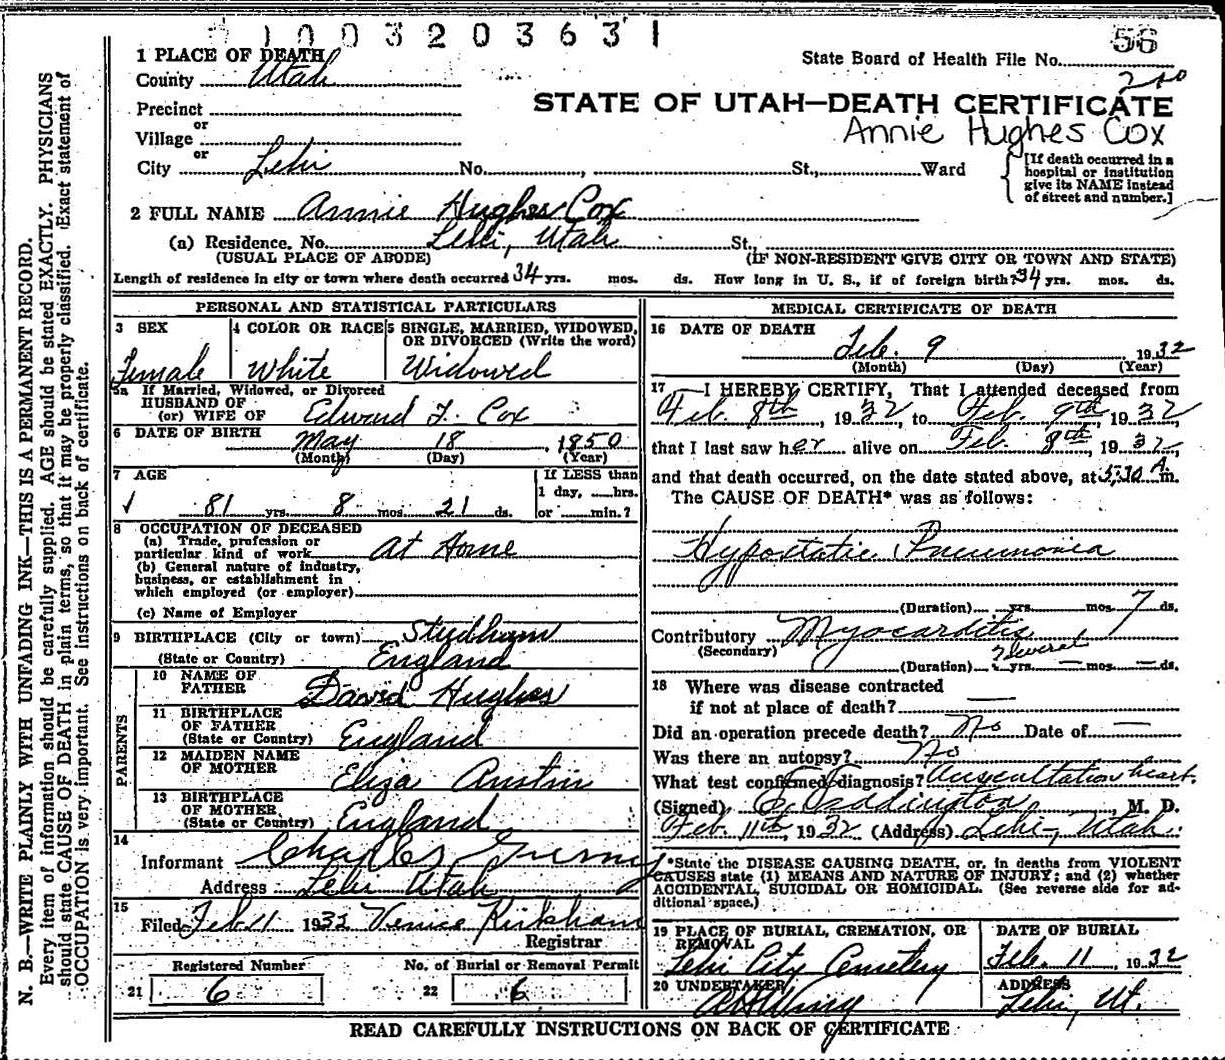 1003203631
56
State Board of Health File No.
1 PLACE OF DEATH
County Utah
Precinct
or
Village
or
City Lehi No. , St., Ward
STATE OF UTAH—DEATH CERTIFICATE
Annie Hughes Cox
[If death occurred in a
hospital or institution
give its NAME instead
of street and number.]
2 FULL NAME Annie Hughes Cox
(a) Residence. No. Lehi, Utah St.,
(USUAL PLACE OF ABODE) (IF NON-RESIDENT GIVE CITY OR TOWN AND STATE)
Length of residence in city or town where death occurred 34 yrs. mos. ds. How long in U. S., if of foreign birth? 34 yrs. mos. ds.
PERSONAL AND STATISTICAL PARTICULARS
3 SEX
Female
4 COLOR OR RACE
White
5 SINGLE, MARRIED, WIDOWED,
OR DIVORCED (Write the word)
Widowed
5a If Married, Widowed, or Divorced
HUSBAND OF
(or) WIFE OF Edward F. Cox
6 DATE OF BIRTH May 18, 1850
(Month) (Day) (Year)
7 AGE
81 yrs. 8 mos. 21 ds.
If LESS than
1 day, ....hrs.
or ....min.?
8 OCCUPATION OF DECEASED
(a) Trade, profession or
particular kind of work At Home
(b) General nature of industry,
business, or establishment in
which employed (or employer)
(c) Name of Employer
9 BIRTHPLACE (City or town) Studham
(State or Country) England
PARENTS
10 NAME OF
FATHER David Hughes
11 BIRTHPLACE
OF FATHER
(State or Country) England
12 MAIDEN NAME
OF MOTHER Eliza Austin
13 BIRTHPLACE
OF MOTHER
(State or Country) England
14
Informant Charles Gurney
Address Lehi Utah
15
Filed Feb 11 1932 Venice Kirkham
Registrar
Registered Number
21 6
No. of Burial or Removal Permit
22 6
MEDICAL CERTIFICATE OF DEATH
16 DATE OF DEATH
Feb. 9, 1932
(Month) (Day) (Year)
17 I HEREBY CERTIFY, That I attended deceased from
Feb. 8th, 1932, to Feb. 9th, 1932
that I last saw her alive on Feb 8th, 1932,
and that death occurred, on the date stated above, at 5:30 A.m.
The CAUSE OF DEATH* was as follows:
Hypostatic Pneumonia
(Duration) yrs. mos. 7 ds.
Contributory Myocarditis
(Secondary) Several
(Duration) yrs. — mos. — ds.
18 Where was disease contracted
if not at place of death? —
Did an operation precede death? No Date of —
Was there an autopsy? No
What test confirmed diagnosis? Auscultation heart.
(Signed) Eddington, M. D.
Feb. 11th, 1932 (Address) Lehi, Utah.
*State the DISEASE CAUSING DEATH, or, in deaths from VIOLENT
CAUSES state (1) MEANS AND NATURE OF INJURY; and (2) whether
ACCIDENTAL, SUICIDAL OR HOMICIDAL. (See reverse side for ad-
ditional space.)
19 PLACE OF BURIAL, CREMATION, OR
REMOVAL
Lehi City Cemetery
DATE OF BURIAL
Feb. 11, 1932
20 UNDERTAKER
Wing
ADDRESS
Lehi, Ut.
READ CAREFULLY INSTRUCTIONS ON BACK OF CERTIFICATE
N. B.—WRITE PLAINLY WITH UNFADING INK—THIS IS A PERMANENT RECORD.
Every item of information should be carefully supplied. AGE should be stated EXACTLY. PHYSICIANS
should state CAUSE OF DEATH in plain terms, so that it may be properly classified. Exact statement of
OCCUPATION is very important. See instructions on back of certificate.